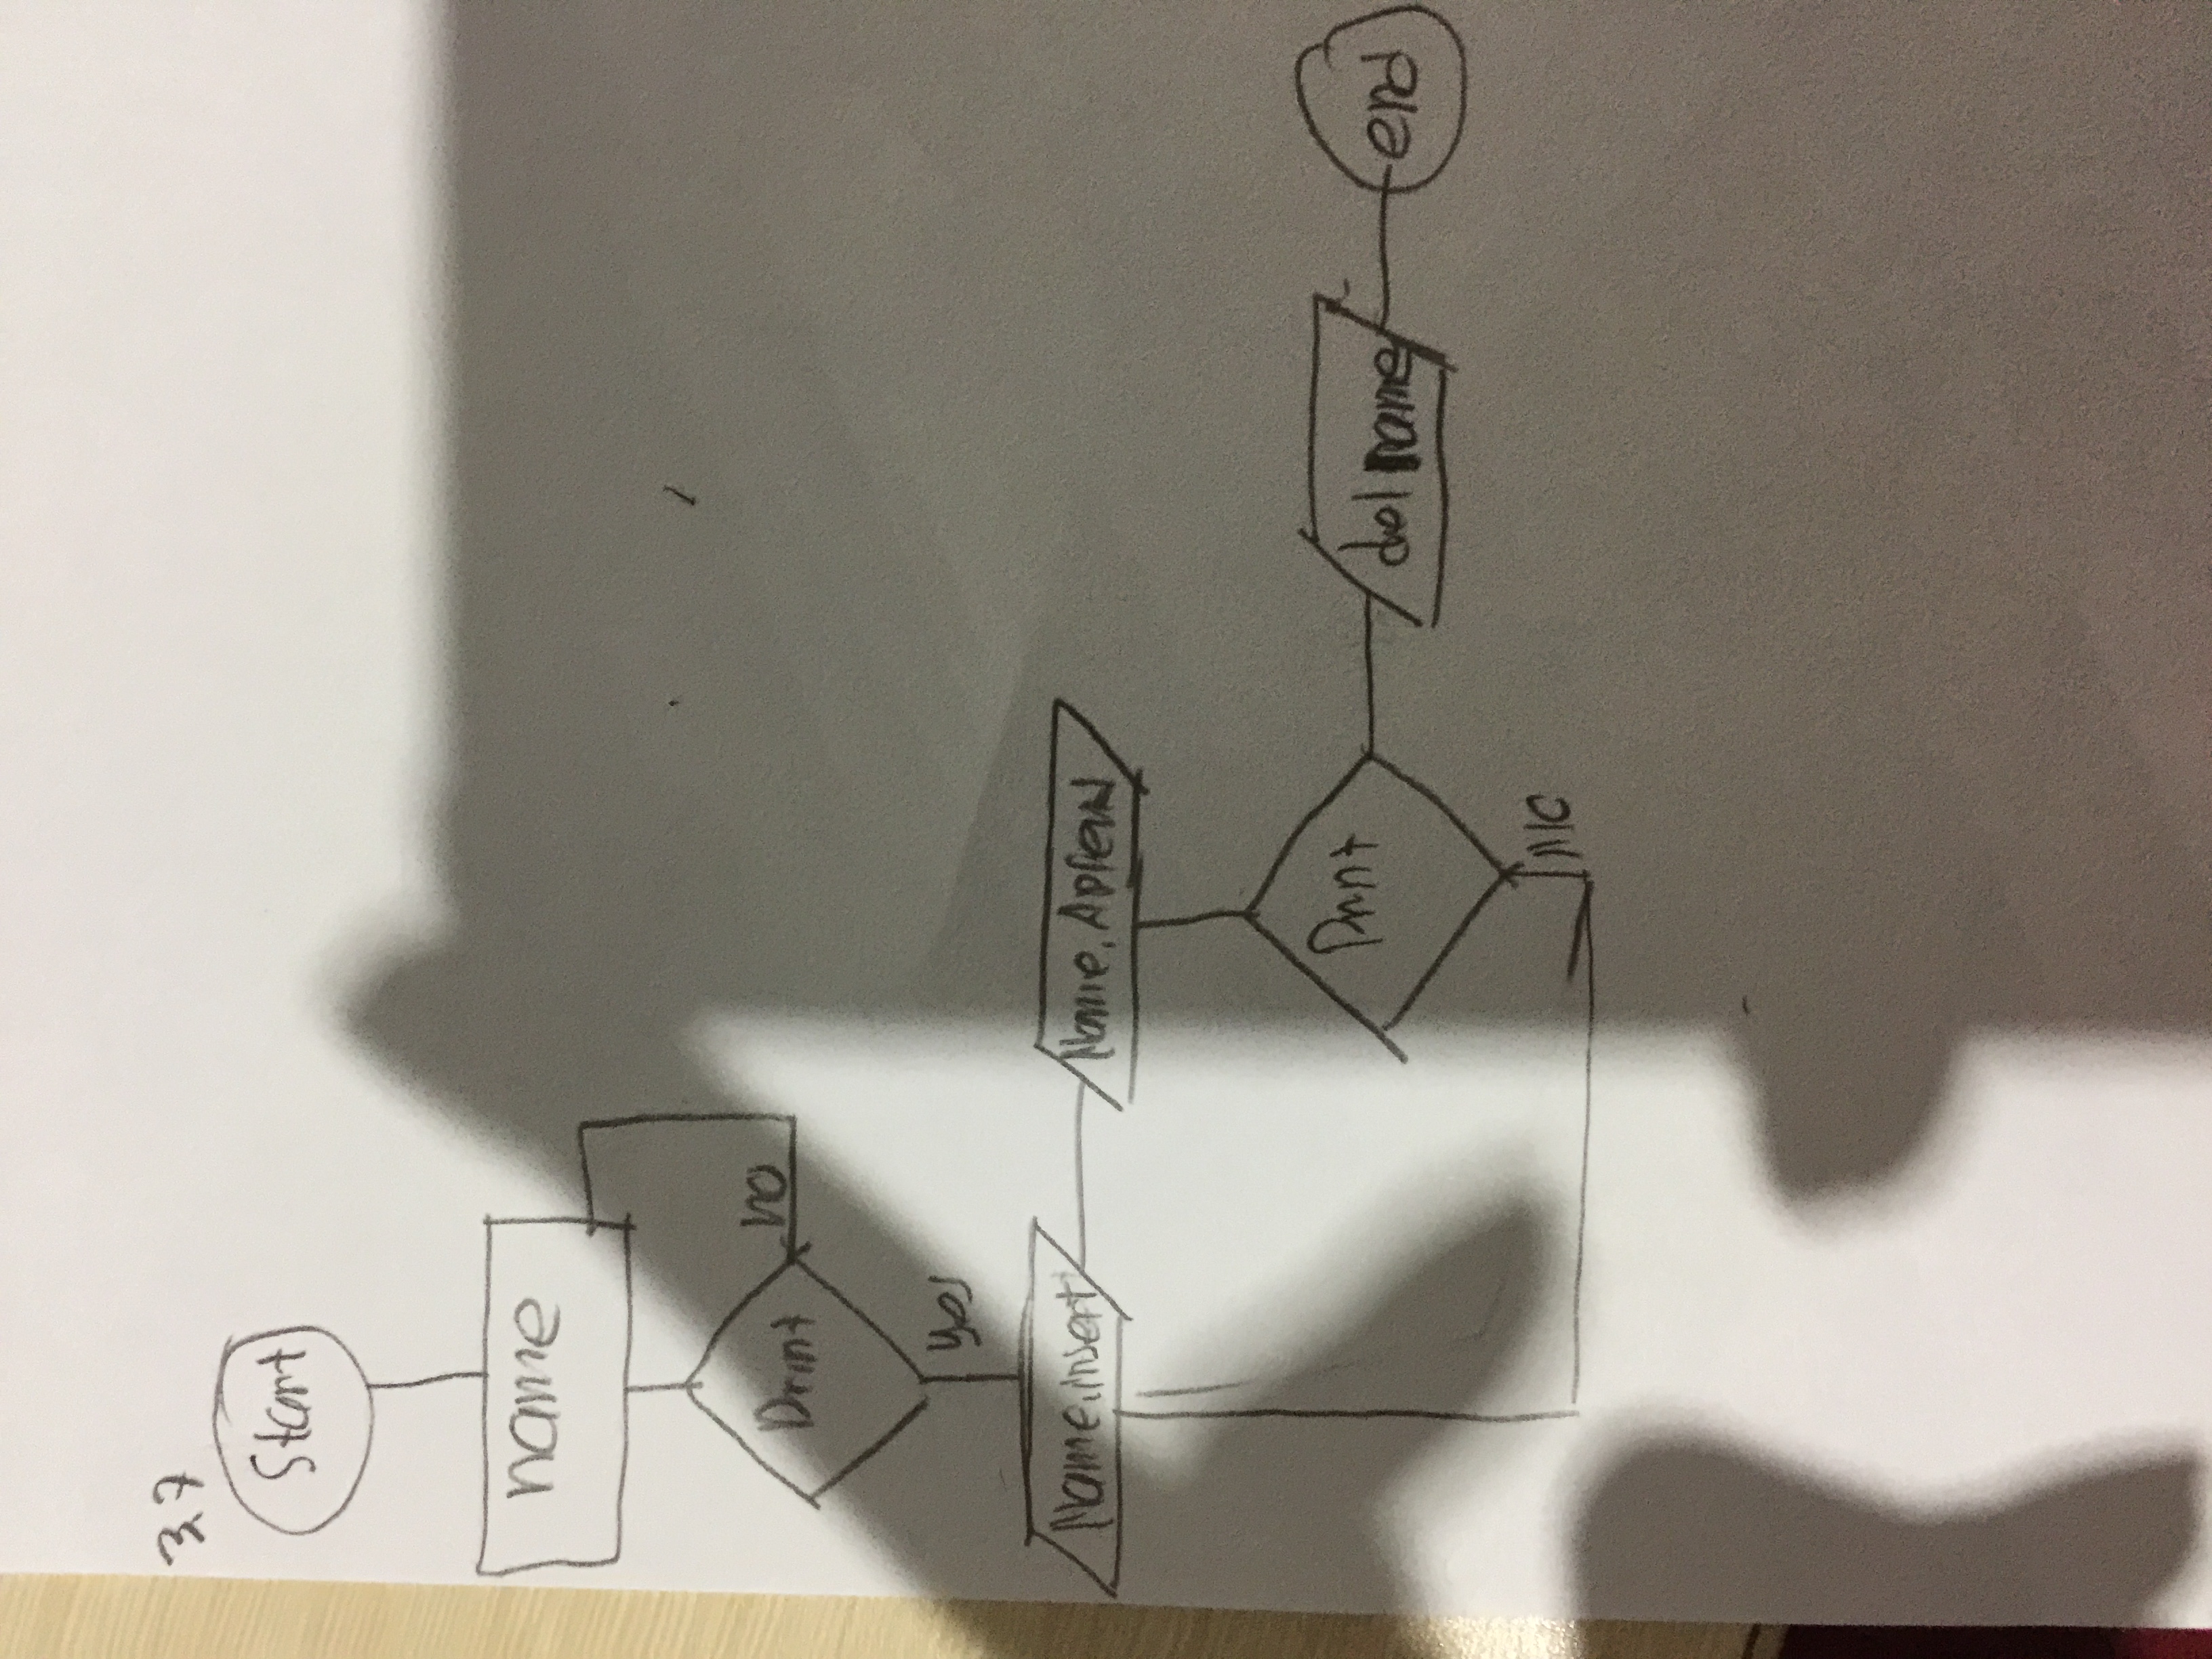 3.7
Start
name
Print
no
yes
Name.insert
Name.Append
Print
del name
end
NO